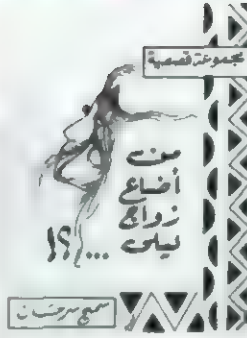 مجموعة قصصية
من
أضاع
زواج
ليلى ...؟!
سميح سرحان